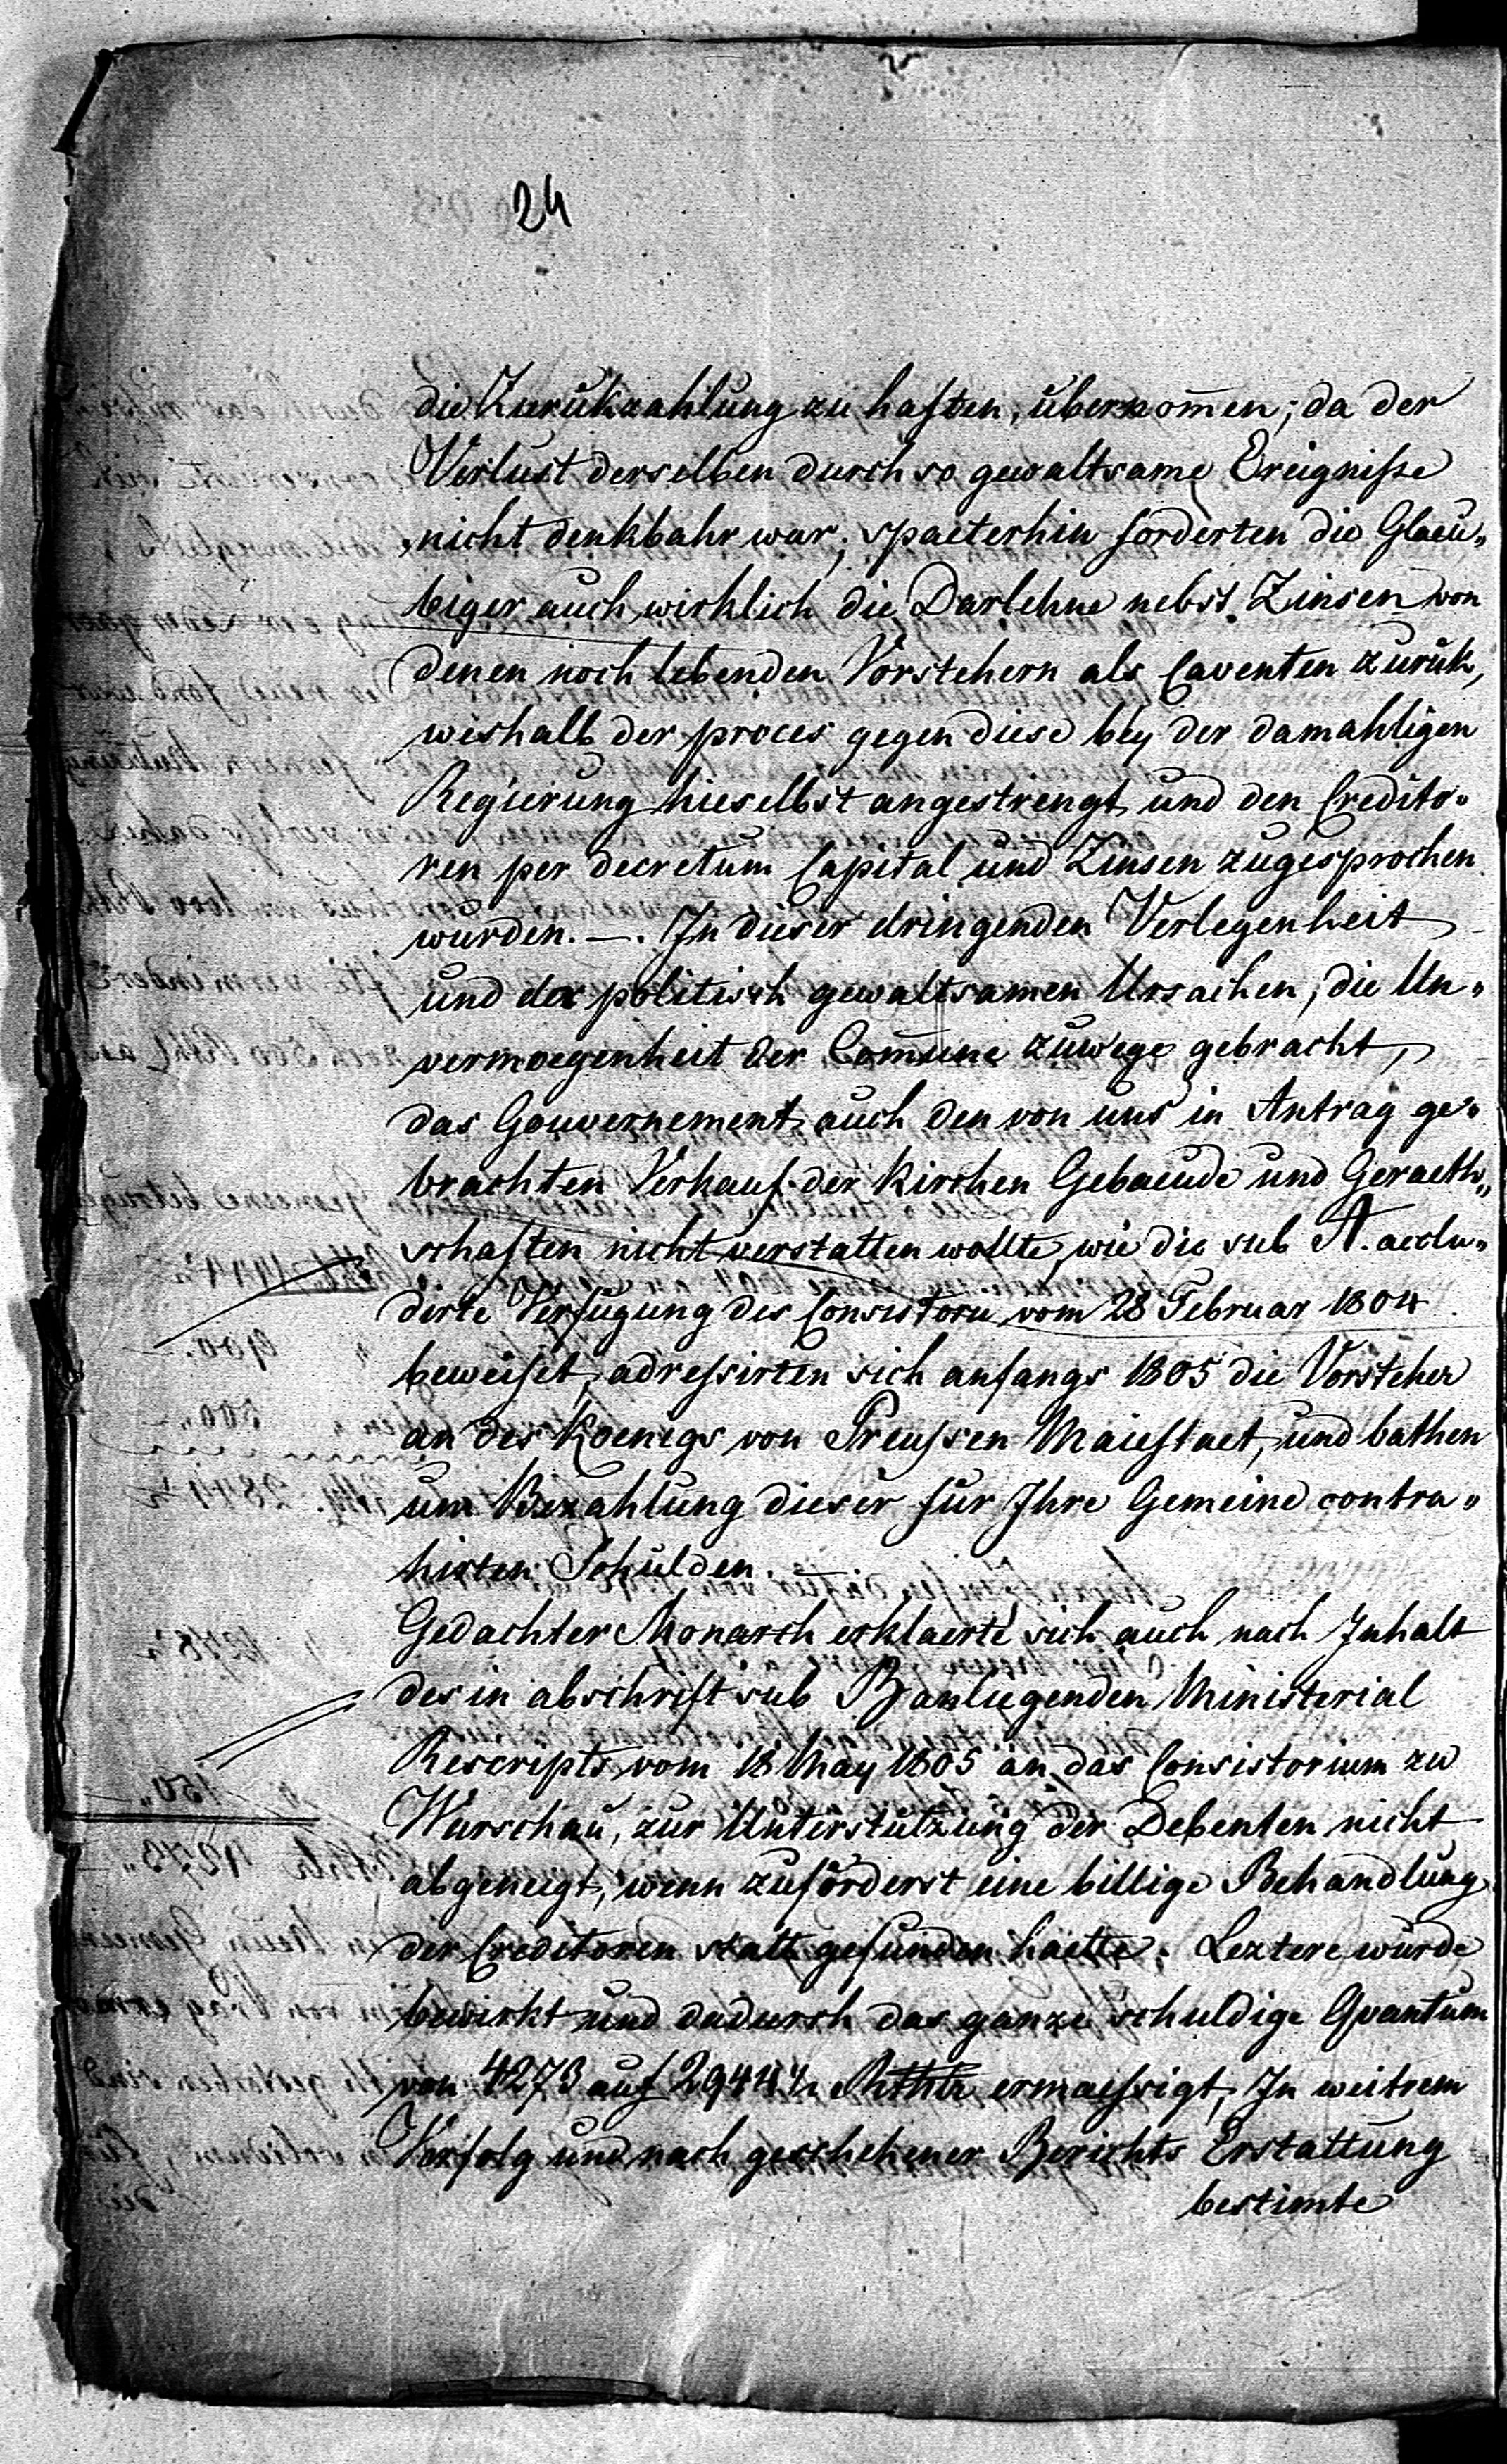 24
die Zurükzahlung zu haften, übernom̄en; da der
Verlust derselben durch so gewaltsame Ereigniße
nicht denkbahr war; spaeterhin forderten die Glaeu„
biger auch wirklich die Darlehne nebst Zinsen von
denen noch lebenden Vorstehern als Caventen zurük,
weshalb der proces gegen diese bey der damahligen
Regierung hieselbst angestrengt und den Credito„
ren per decretum Capital und Zinsen zugesprochen
wurden. —. In dieser dringenden Verlegenheit
und der politisch gewaltsamen Ursachen, die Un„
vermoegenheit der Com̄une zuwege gebracht,
das Gouvernement auch den von uns in Antrag ge„
brachten Verkauf der Kirchen Gebaeude und Geraeth„
schaften nicht verstatten wollte, wie die sub A. acclu„
dirte Verfügung des Consistorii vom 28 Februar 1804
beweiset, adressirten sich anfangs 1805 die Vorsteher
an des Koenigs von Preussen Maiestaet, und bathen
um Bezahlung dieser für Ihre Gemeine contra„
hirten Schulden. —
Gedachter Monarch erklaerte sich auch nach Inhalt
des in abschrift sub B anliegenden Ministerial
Rescripts vom 18 May 1805 an das Consistorium zu
Warschau, zur Unterstützung der Debenten nicht
abgeneigt, wenn zuförderst eine billige Behandlung
der Creditoren statt gefunden haette. Leztere wurde
bewirkt und dadurch das ganze schuldige Quantum
von 4273 auf 2944½ Rthlr ermaessigt, In weitrem
Verfolg und nach geschehener Berichts Erstattung
bestimte